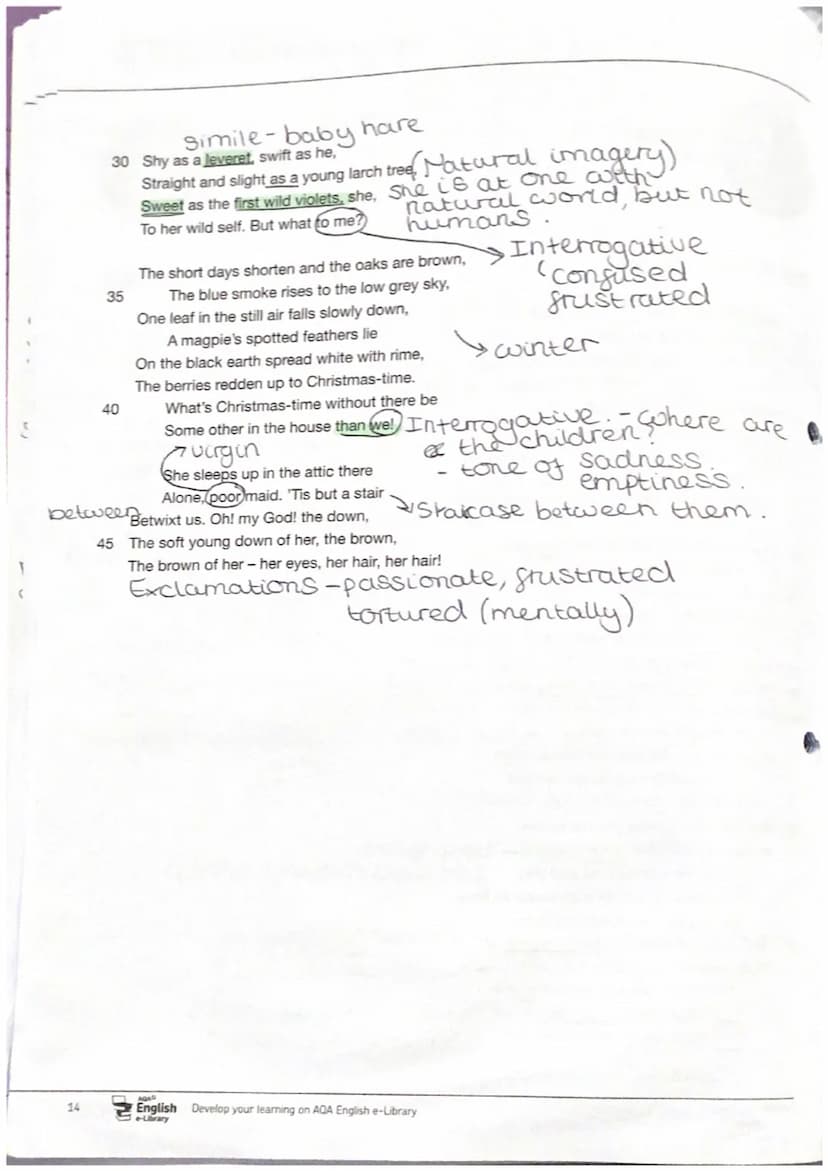 simile - baby hare
30 Shy as a leveret, swift as he,
Straight and slight as a young larch tree, (Natural imagery)
Sweet as the first wild violets, she, she is at one with
natural world, but not
To her wild self. But what to me? humans.
Interrogative
The short days shorten and the oaks are brown,
(confused
35 The blue smoke rises to the low grey sky,
frustrated
One leaf in the still air falls slowly down,
A magpie's spotted feathers lie
winter
On the black earth spread white with rime,
The berries redden up to Christmas-time.
40 What's Christmas-time without there be
Some other in the house than we! Interrogative. - Where are
the children?
virgin
- tone of sadness.
She sleeps up in the attic there
emptiness.
Alone, poor maid. 'Tis but a stair
between
Betwixt us. Oh! my God! the down, Staircase between them.
45 The soft young down of her, the brown,
The brown of her – her eyes, her hair, her hair!
Exclamations - passionate, frustrated
tortured (mentally)
14 AQA English e-Library Develop your learning on AQA English e-Library